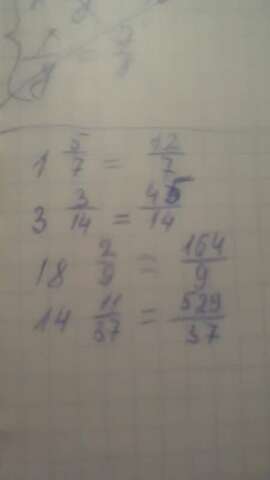 1 5/7 = 12/7
3 3/14 = 45/14
18 2/9 = 164/9
14 11/37 = 529/37